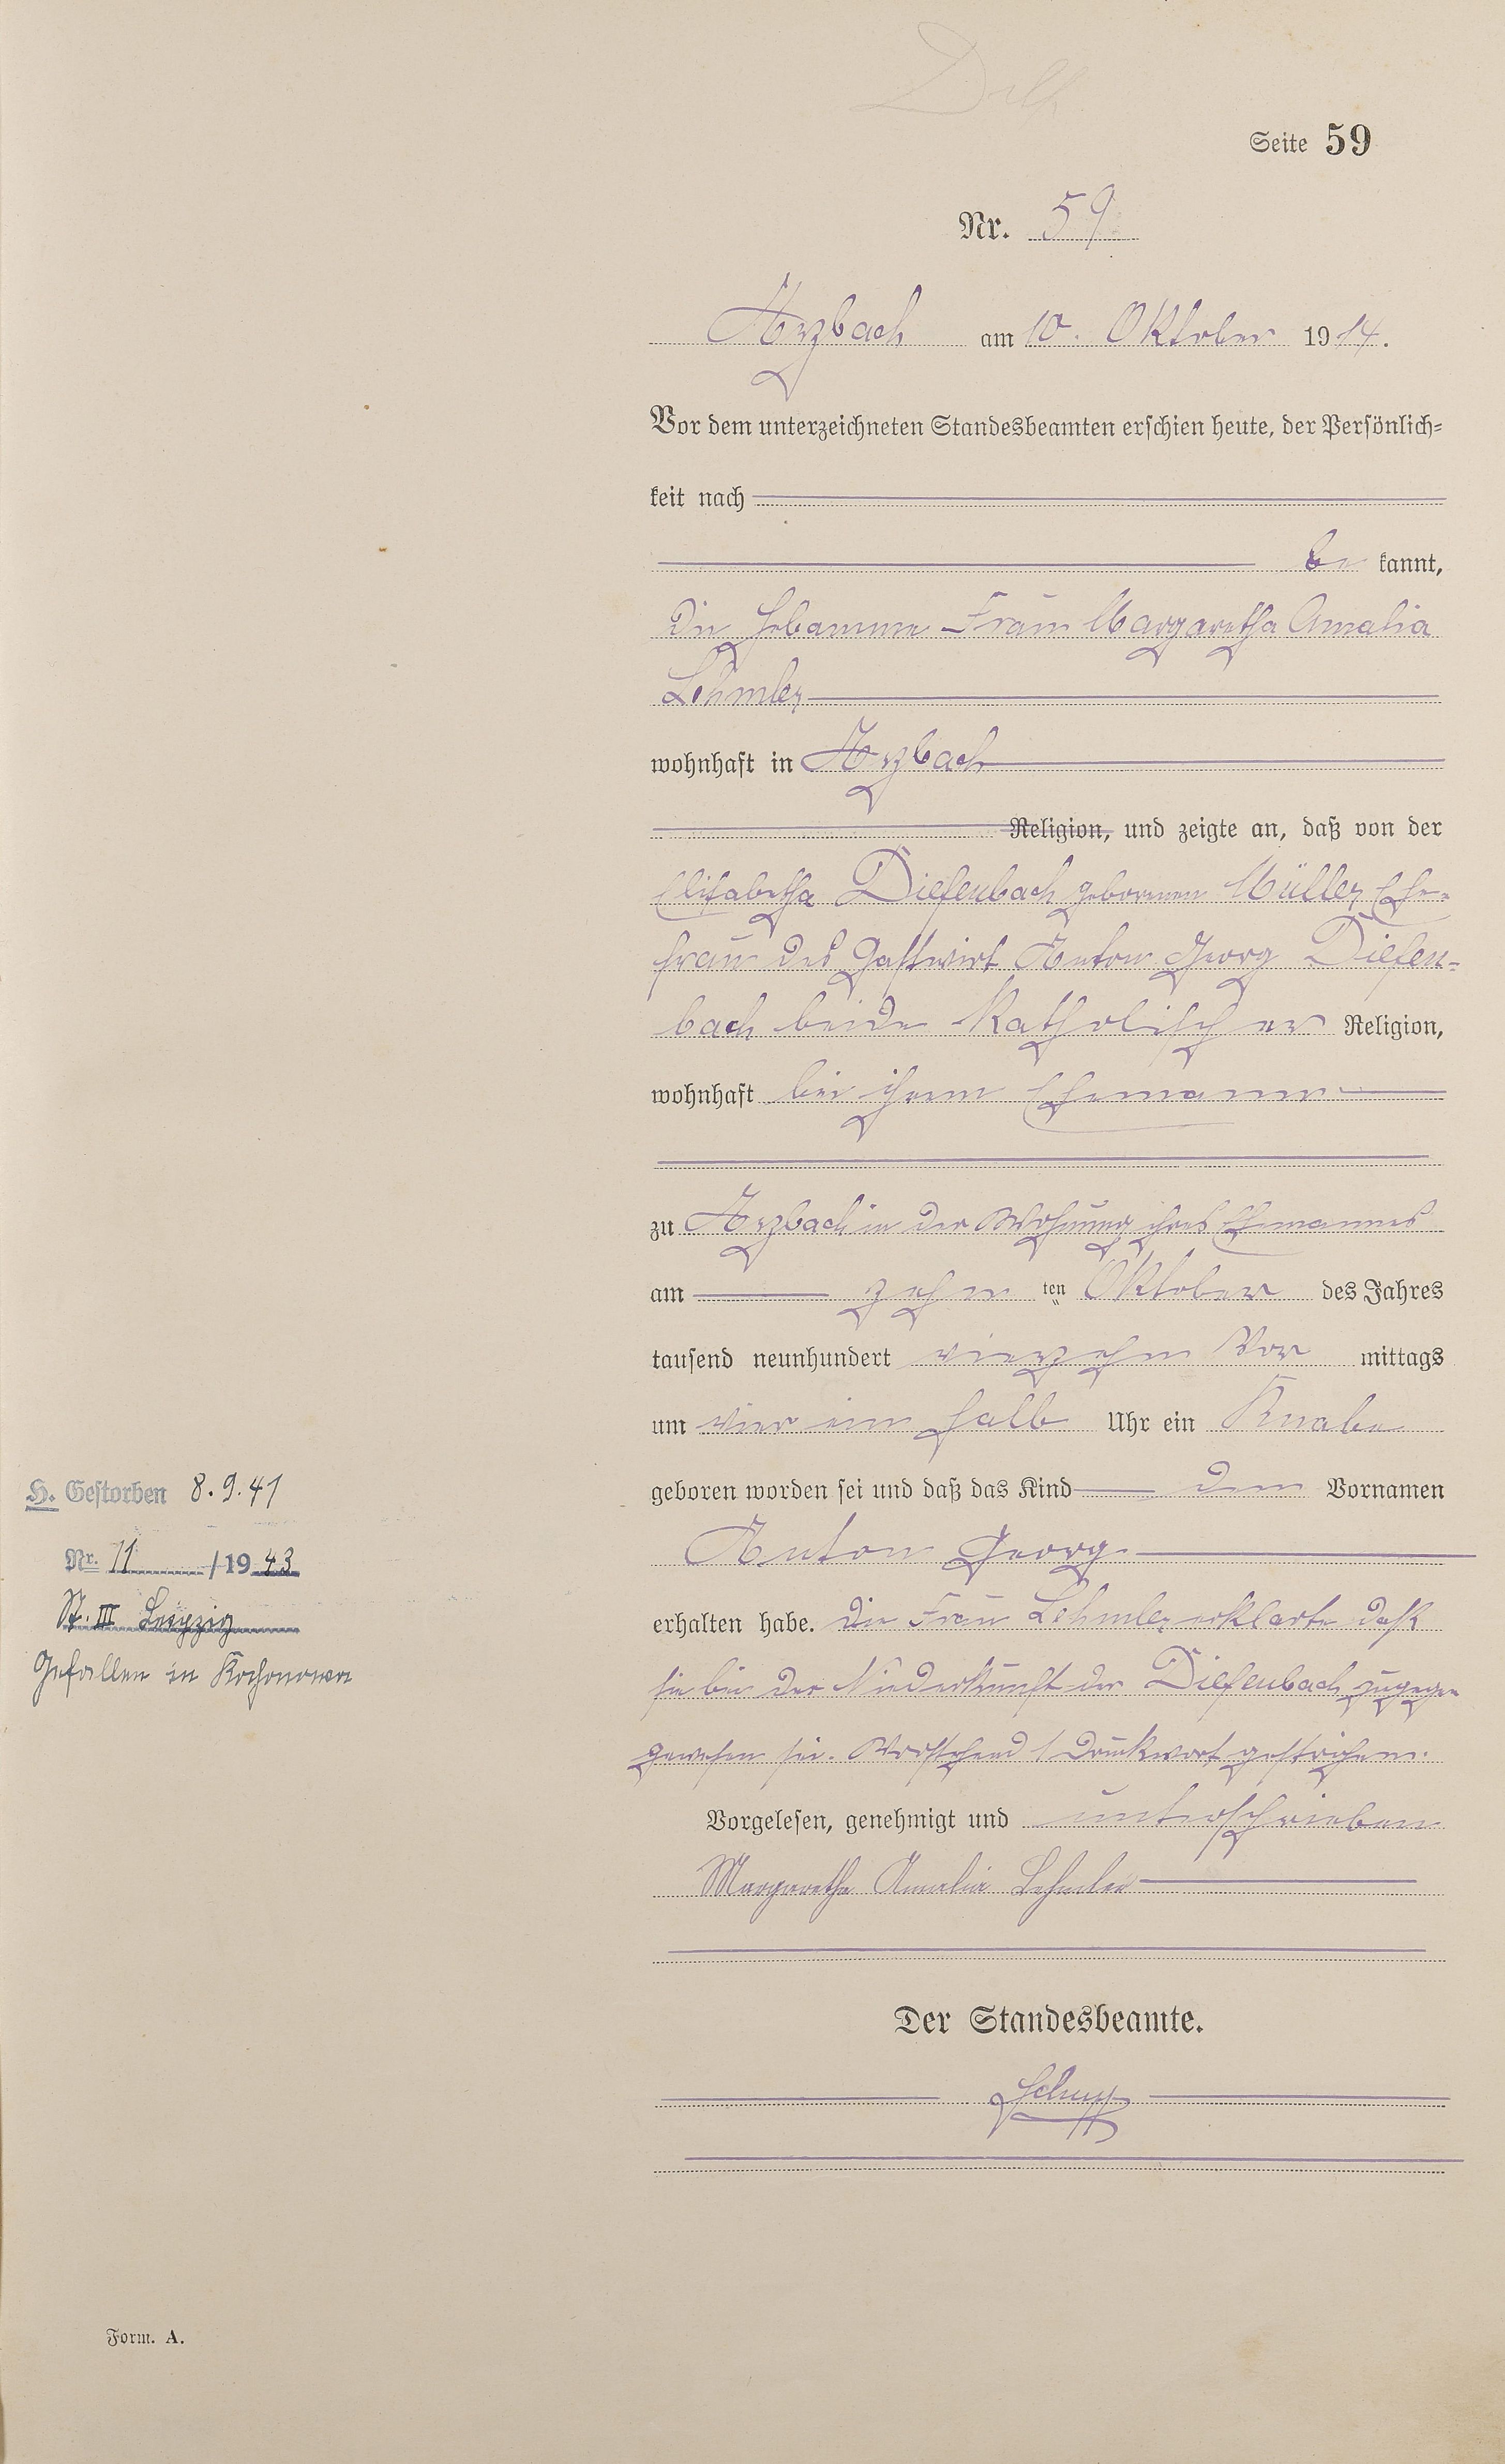 Seite 59
Nr. 59
Arzbach am 10. Oktober 1914.
Vor dem unterzeichneten Standesbeamten erschien heute, der Persönlich=
keit nach
be kannt,
die Hebamme Frau Margaretha Amalia
Lehmler
wohnhaft in Arzbach
Religion, und zeigte an, daß von der
Elisabetha Diefenbach geborenen Müller, Ehe=
frau des Gastwirt Anton Georg Diefen=
bach beide katholischer Religion,
wohnhaft bei ihrem Ehemann
zu Arzbach in der Wohnung ihres Ehemannes
am zehn ten Oktober des Jahres
tausend neunhundert vierzehn Vor mittags
um vier ein halb Uhr ein Knabe
geboren worden sei und daß das Kind den Vornamen
Anton Georg
erhalten habe. Die Frau Lehmler erklärte daß
sie bei der Niederkunft der Diefenbach zugegen
gewesen sei. Vorstehend 1 Druckwort gestrichen.
Vorgelesen, genehmigt und unterschrieben
Margaretha Amalia Lehmler
Der Standesbeamte.
Schupp
H. Gestorben 8.9.41
Nr. 11 /1943
St. III Leipzig
Gefallen in Kochonowa
Form. A.